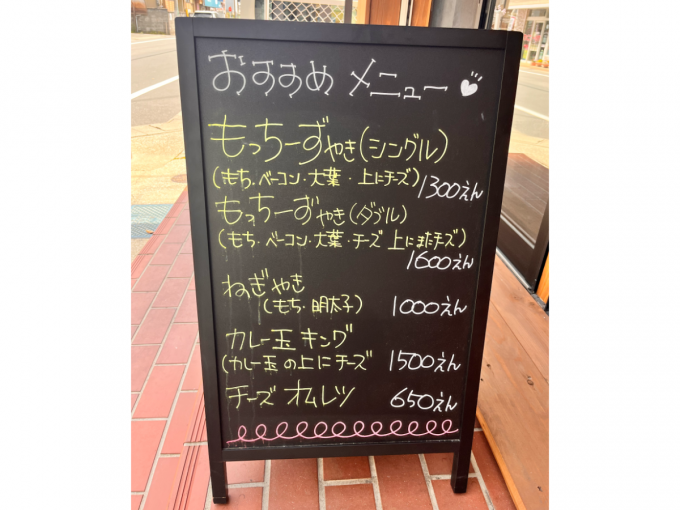 おすすめ メニュー
もっちーずやき(シングル)
(もち・ベーコン・大葉・上にチーズ) 1300えん
もっちーずやき(ダブル)
(もち・ベーコン・大葉・チーズ 上にまたチーズ)
1600えん
ねぎやき
(もち・明太子) 1000えん
カレー玉キング
(カレー玉の上にチーズ 1500えん
チーズオムレツ 650えん